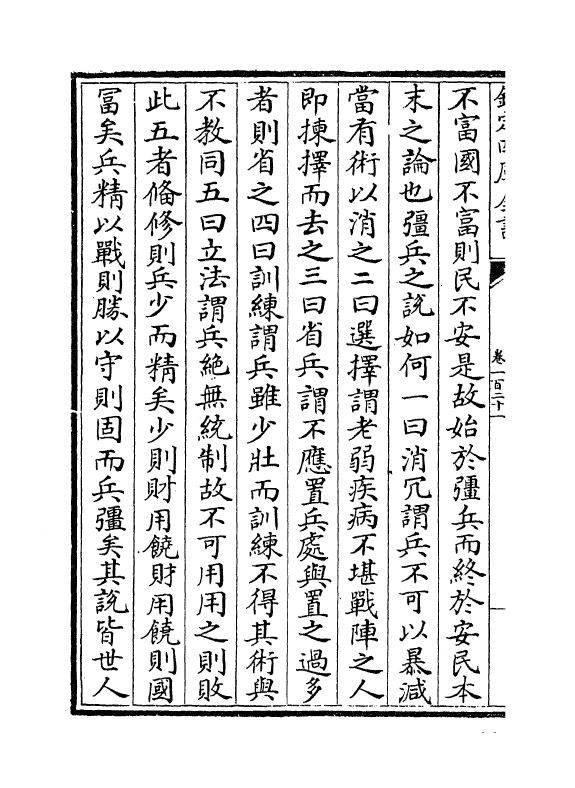 欽定四庫全書
卷一百二十一
不富國不富則民不安是故始於彊兵而終於安民本
末之論也彊兵之說如何一曰消冗謂兵不可以暴減
當有術以消之二曰選擇謂老弱疾病不堪戰陣之人
即揀擇而去之三曰省兵謂不應置兵處與置之過多
者則省之四曰訓練謂兵雖少壯而訓練不得其術與
不教同五曰立法謂兵絶無統制故不可用用之則敗
此五者偹修則兵少而精矣少則財用饒財用饒則國
冨矣兵精以戰則勝以守則固而兵彊矣其說皆世人